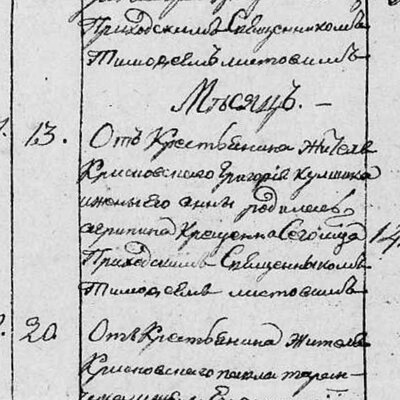 Приходскимъ Священникомъ
Тимофеемъ листовимъ
Мѣсяцъ. —
13. Отъ Крестьянина жителя
Крисновского Григорія Кулика
и жены его анны родилась
агрипина Крещенна Сегомца 14
Приходскимъ Священникомъ
Тимофеемъ листовимъ
20 Отъ Крестьянина жителя
Крисновского павла таран-